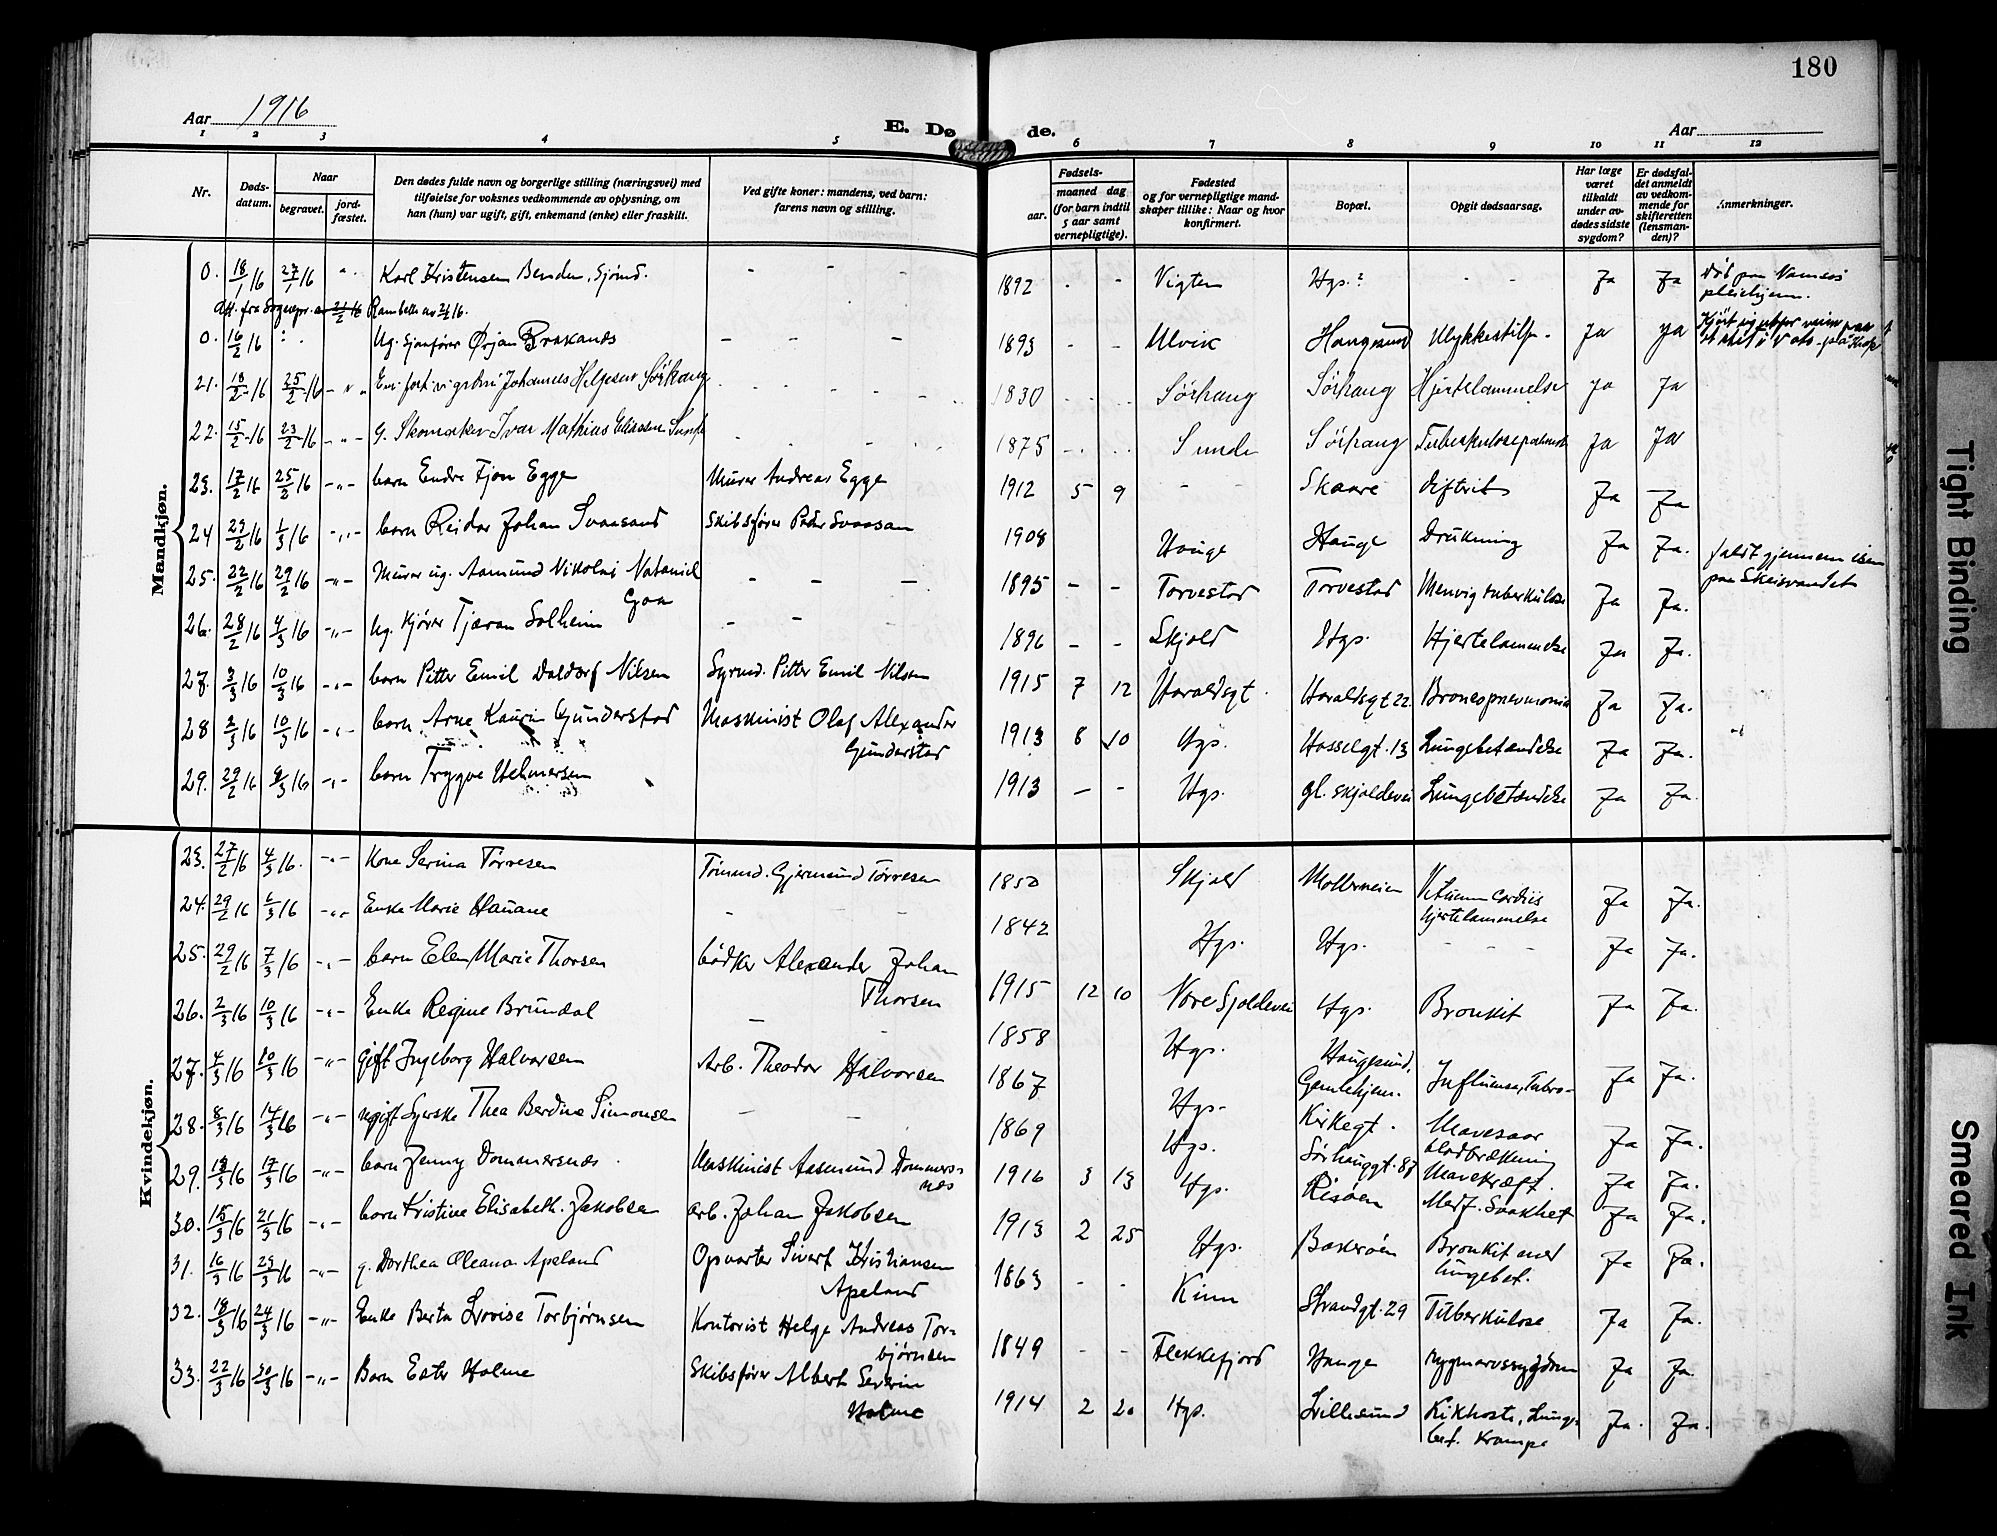 180
Aar 1916
E. Dø de.
Aar
1 2 3 4 5 6 7 8 9 10 11 12
Nr.
Døds-datum.
Naar
begravet.
jord-fæstet.
Den dødes fulde navn og borgerlige stilling (næringsvei) med
tilføielse for voksnes vedkommende av oplysning, om
han (hun) var ugift, gift, enkemand (enke) eller fraskilt.
Ved gifte koner: mandens, ved barn:
farens navn og stilling.
Fødsels-
aar.
maaned dag
(for barn indtil
5 aar samt
vernepligtige).
Fødested
og for vernepligtige mand-
skaper tillike: Naar og hvor
konfirmert.
Bopæl.
Opgit dødsaarsag.
Har læge
været
tilkaldt
under av-
dødes sidste
sygdom?
Er dødsfal-
det anmeldt
av vedkom-
mende for
skifteretten
(lensman-
den)?
Anmerkninger.
Mandkjøn.
0. 18/1 16 27/1 16 -"- Karl Kristensen Bendu. Sjömd. - - - 1892 - - Vigten Hgs.? - - Ja Ja Död paa Namsos
pleiehjem.
0. 16/2 16 Ug. Sjømfører Ørjan Brakanes - - - 1893 - - Ulvik Haugesund Ulykkestilf. Ja Ja
21. 18/2 16 25/2 16 -"- Johannes Helgesen Sörhaug 1830 Sörhaug Sörhaug Hjertelammelse Ja Ja
22. 15/2 16 23/2 16 -"- G. Skomaker Ivar Mathias Eliasen Sunde 1875 Sunde Sörhaug Tuberkulose Ja Ja
23. 17/2 16 25/2 16 -"- barn Endre Fjon Egge Murer Andreas Egge 1912 5 9 - - Skaare Diftrit Ja Ja
24 23/2 16 1/3 16 -"- barn Reidar Johan Svaasand Skibsfører Peder Svaasan 1908 Hauge Hauge Drukning Ja Ja. faldt gjennem isen
paa Skeisvandet
25. 22/2 16 29/2 16 -"- Murer ug. Aamund Nikolai Nataniel
Goa - - - 1895 - - Torvestad Torvestad Ja Ja.
26. 28/2 16 4/3 16 -"- Ug. Kjører Tjæran Solheim - - 1896 - - Skjold Hgs. Hjertelammelse Ja Ja.
27. 3/3 16 10/3 16 -"- barn Pitter Emil Daldorf Nilsen Pitter Emil Nilsen 1915 7 12 Haraldsgt. Haraldsgt 22 Broncopneumonia Ja Ja.
28 2/3 16 10/3 16 -"- barn Arne Kaurin Gunderstad Maskinist Olaf Alexander
Gunderstad 1913 8 10 Hgs. Hasselgt. 13 Lungebetændelse Ja Ja. -"
29. 29/2 16 9/3 16 -"- barn Trygve Helmersen 1913 - - Hgs. gl. Skjoldevei Lungebetændelse Ja Ja.
Kvindekjøn.
23. 27/2 16 4/3 16. -"- Kone Serina Tørresen Tømmd. Gjermund Tørresen 1850 Skjold Møllerveien Vitium cordis
hjertelammelse Ja Ja.
24. 29/2 16 6/3 16 -"- Enke Marie Hauane - - 1842 Hgs. Hgs. - - - Ja Ja.
25. 29/2 16 7/3 16 -"- barn Elen Marie Thorsen bødker Alexander Johan
Thorsen 1915 12 10 Nore Sjoldevei Hgs. Bronkit Ja Ja.
26. 2/3 16 10/3 16 -"- Enke Regine Brundal - - 1858 Hgs. Haugesund,
Gamlehjem. Influensa, Ja Ja.
27. 4/3 16 10/3 16 -"- gift Ingeborg Halvorsen Arb. Theodor Halvorsen 1867 Hgs. Kirkegt. Mavesaar
blodbrækning Ja Ja.
28. 8/3 16 14/3 16 -"- ugift Syerske Thea Berdine Simonsen - - 1869 Hgs. Sørhauggt. 87 Mavekræft. Ja Ja.
29. 13/3 16 17/3 16 -"- barn Jenny Dommersnes Maskinist Aasmund Dommers-
nes 1916 3 13 Hgs. Risøen Medf. Svakhet Ja Ja.
30. 15/3 16 21/3 16 -"- barn Kristine Elisabeth Jakobsen arb. Johan Jakobsen 1913 2 25 Hgs. Bakerøen Bronkit med
lungebet. Ja Ja.
31. 16/3 16 23/3 16 -"- g. Dorthea Oleana Apeland Opvarter Sivert Kristiansen
Apeland 1863 - - Kinn Strandgt. 29 Tuberkulose Ja Ja.
32. 18/3 16 24/3 16 -"- Enke Berta Lovise Torbjørnsen Kontorist Helge Andreas Tor-
bjørnsen 1849 - - Flekkefjord Hauge Rygmarvssygdom Ja Ja.
33. 22/3 16 30/3 16 -"- Barn Ester Holme Skibsfører Albert Severin
Holme 1914 2 20 Hgs. Lillesund Kikhoste, Lunge-
bet. Krampe Ja. Ja.
Tight Binding
Smeared Ink